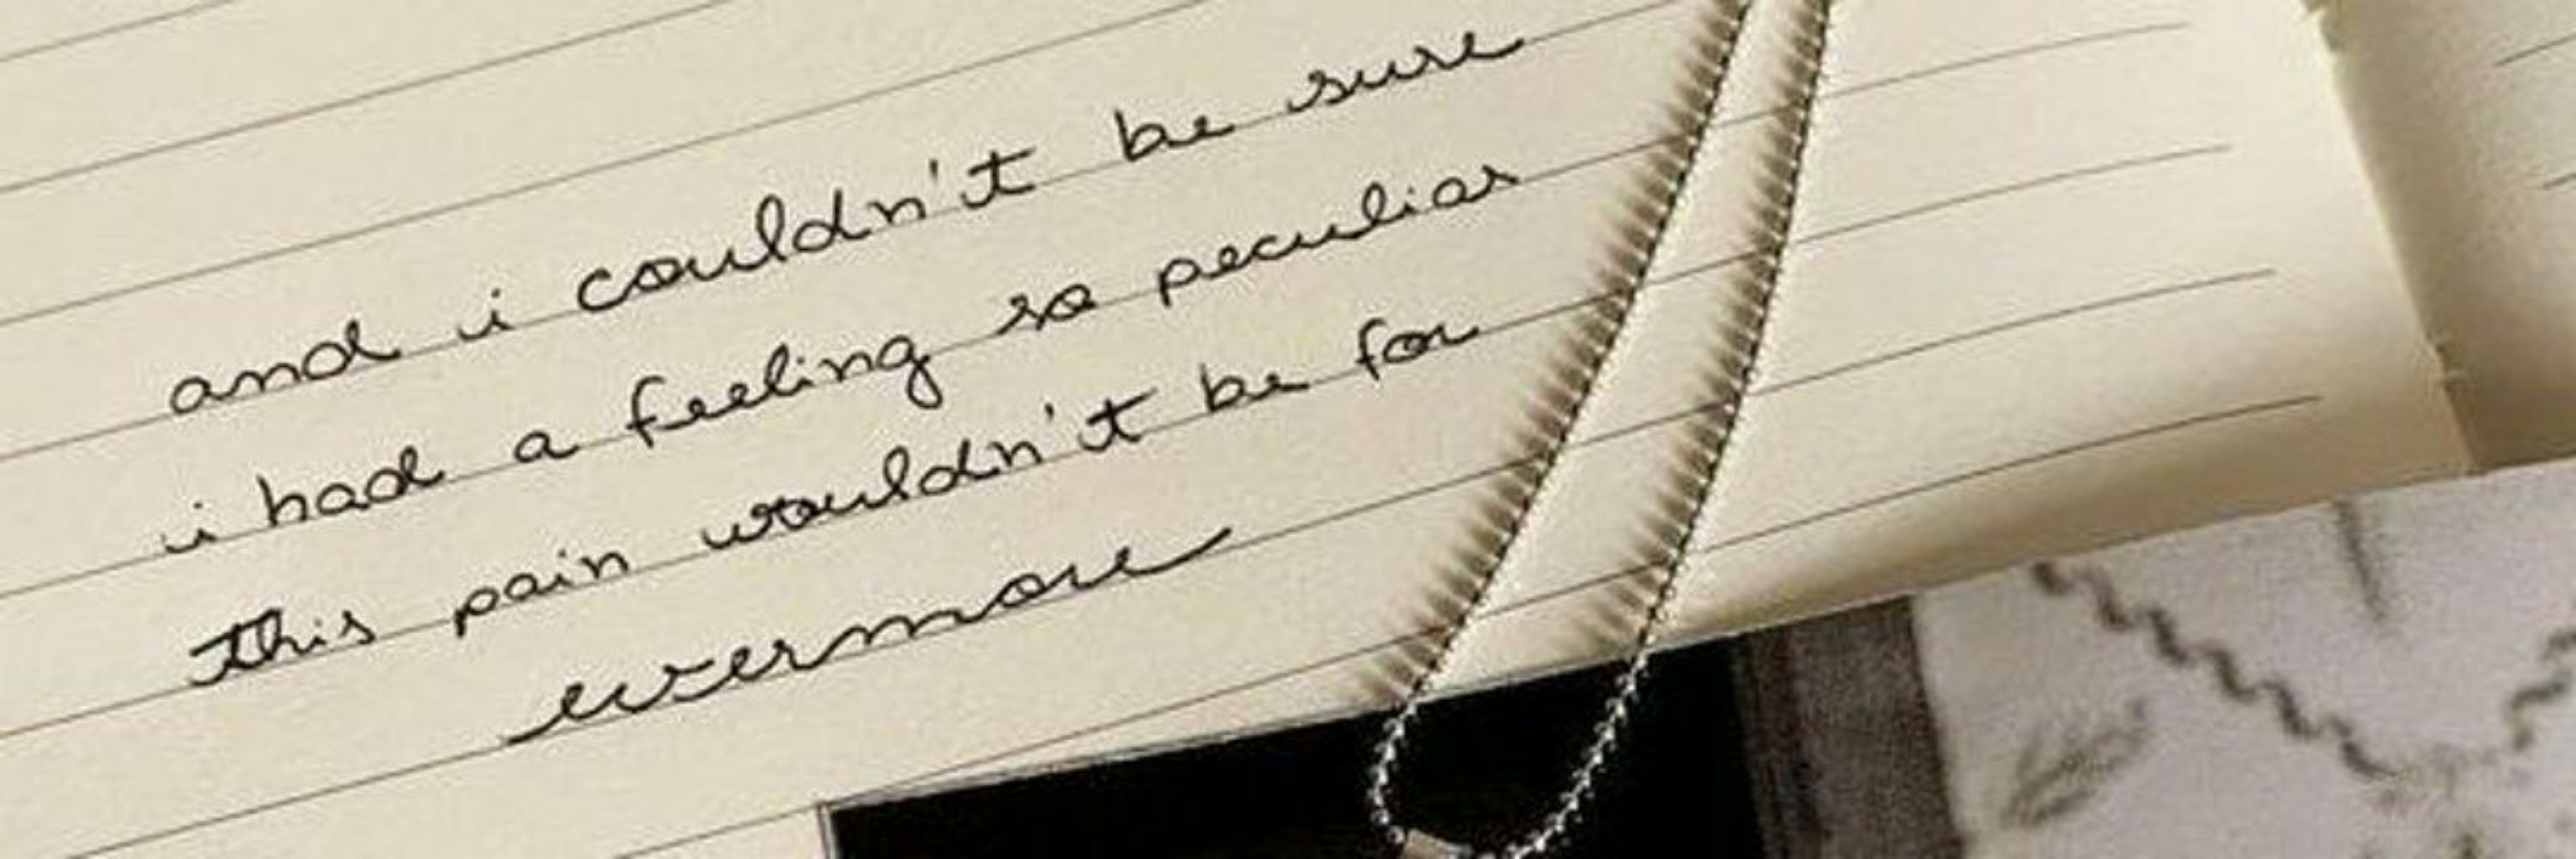 and i couldn't be sure
i had a feeling so peculiar
this pain wouldn't be for
evermore